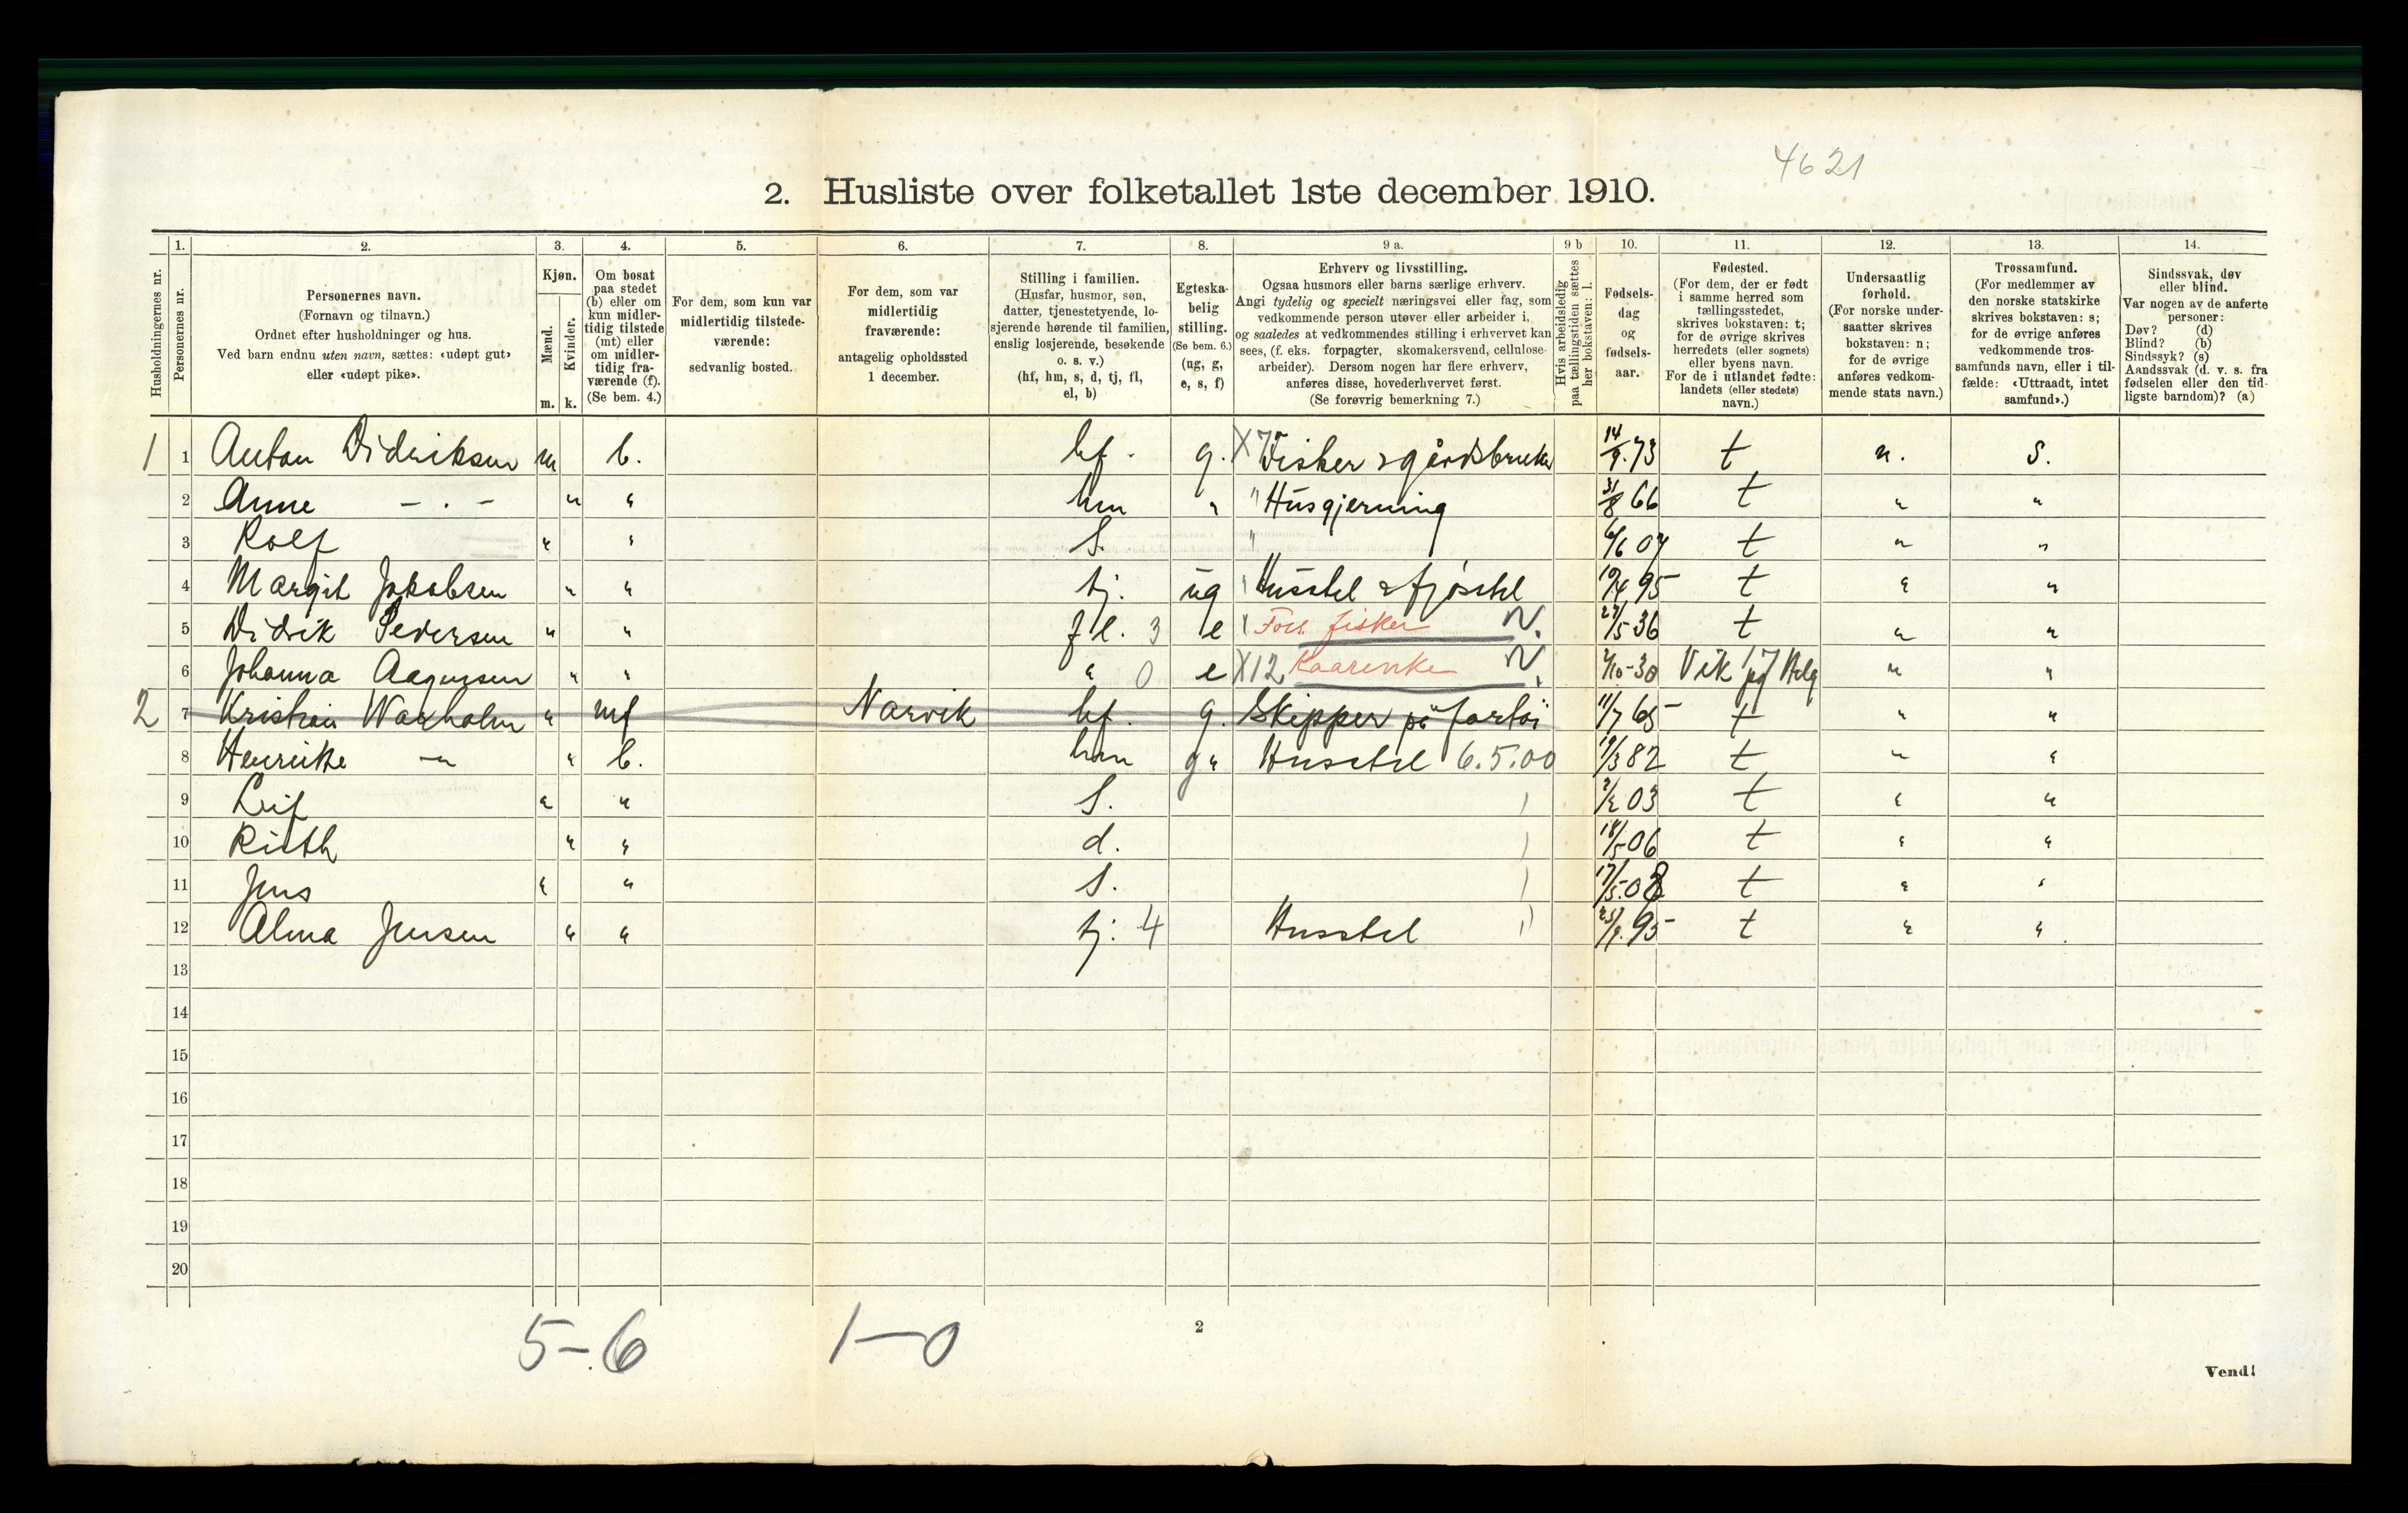 4621
2. Husliste over folketallet 1ste december 1910.
Husholdningernes nr.
1. Personernes nr.
2. Personernes navn.
(Fornavn og tilnavn.)
Ordnet efter husholdninger og hus.
Ved barn endnu uten navn, sættes: «udøpt gut»
eller «udøpt pike».
3. Kjøn.
Mænd. m.
Kvinder. k.
4. Om bosat
paa stedet
(b) eller om
kun midler-
tidig tilstede
(mt) eller
om midler-
tidig fra-
værende (f).
(Se bem. 4.)
5. For dem, som kun var
midlertidig tilstede-
værende:
sedvanlig bosted.
6. For dem, som var
midlertidig
fraværende:
antagelig opholdssted
1 december.
7. Stilling i familien.
(Husfar, husmor, søn,
datter, tjenestetyende, lo-
sjerende hørende til familien,
enslig losjerende, besøkende
o. s. v.)
(hf, hm, s, d, tj, fl,
el, b)
8. Egteska-
belig
stilling.
(Se bem. 6.)
(ug, g,
e, s, f)
9 a. Erhverv og livsstilling.
Ogsaa husmors eller barns særlige erhverv.
Angi tydelig og specielt næringsvei eller fag, som
vedkommende person utøver eller arbeider i,
og saaledes at vedkommendes stilling i erhvervet kan
sees, (f. eks. forpagter, skomakersvend, cellulose-
arbeider). Dersom nogen har flere erhverv,
anføres disse, hovederhvervet først.
(Se forøvrig bemerkning 7.)
9 b Hvis arbeidsledig
paa tællingstiden sættes
her bokstaven: l.
10. Fødsels-
dag
og
fødsels-
aar.
11. Fødested.
(For dem, der er født
i samme herred som
tællingsstedet,
skrives bokstaven: t;
for de øvrige skrives
herredets (eller sognets)
eller byens navn.
For de i utlandet fødte:
landets (eller stedets)
navn.)
12. Undersaatlig
forhold.
(For norske under-
saatter skrives
bokstaven: n;
for de øvrige
anføres vedkom-
mende stats navn.)
13. Trossamfund.
(For medlemmer av
den norske statskirke
skrives bokstaven: s;
for de øvrige anføres
vedkommende tros-
samfunds navn, eller i til-
fælde: «Uttraadt, intet
samfund».)
14. Sindssvak, døv
eller blind.
Var nogen av de anførte
personer:
Døv? (d)
Blind? (b)
Sindssyk? (s)
Aandssvak (d. v. s. fra
fødselen eller den tid-
ligste barndom)? (a)
1 1 Anton Didriksen m b. hf. g. X7 Fisker & gårdsbruker 14/9.73 t n. S.
2 Anne — . — " " hm " " Husgjerning 31/8 66 t " "
3 Rolf " " S. " 6/6 07 t " "
4 Margit Jakobsen " " tj. ug Husstel & fjøsstel 19/4 95 t " "
5 Didrik Pedersen " " fl. 3 e Forh. fisker N. 27/5 36 t " "
6 Johanna Aagensen " " " 0 e X12 Kaarenke N. 2/10-30 Vik Helg " "
2 7 Kristian Waxholm " mf Narvik hf. g. Skipper på fartöi 11/7 65 t " "
8 Henrikke — " " b. hm g " Husstel 6.5.00 19/3 82 t " "
9 Leif " " S. 2/2 03 t " "
10 Ruth " " d. 18/5 06 t " "
11 Jens " " S. 17/5.08 t " "
12 Alma Jensen " " tj. 4 Husstel 25/9.95 t " "
13
14
15
16
17
18
19
20
5-6 1-0
2
Vend!